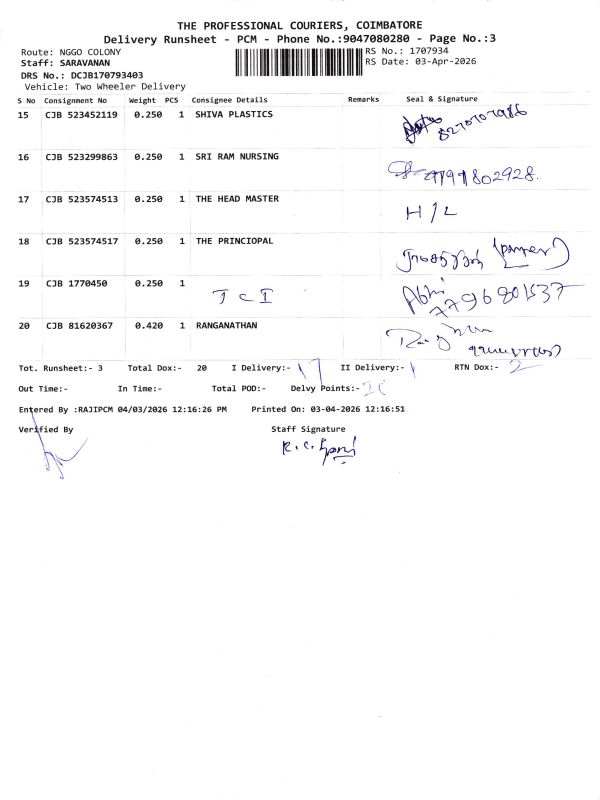 THE PROFESSIONAL COURIERS, COIMBATORE
Delivery Runsheet - PCM - Phone No.:9047080280 - Page No.:3
Route: NGGO COLONY RS No.: 1707934
Staff: SARAVANAN RS Date: 03-Apr-2026
DRS No.: DCJB170793403
Vehicle: Two Wheeler Delivery
S No Consignment No Weight PCS Consignee Details Remarks Seal & Signature
15 CJB 523452119 0.250 1 SHIVA PLASTICS
16 CJB 523299863 0.250 1 SRI RAM NURSING
17 CJB 523574513 0.250 1 THE HEAD MASTER H/L
18 CJB 523574517 0.250 1 THE PRINCIOPAL
19 CJB 1770450 0.250 1 TCI Abhi
20 CJB 81620367 0.420 1 RANGANATHAN
Tot. Runsheet:- 3 Total Dox:- 20 I Delivery:- 17 II Delivery:- 1 RTN Dox:- 2
Out Time:- In Time:- Total POD:- Delvy Points:- 20
Entered By :RAJIPCM 04/03/2026 12:16:26 PM Printed On: 03-04-2026 12:16:51
Verified By Staff Signature